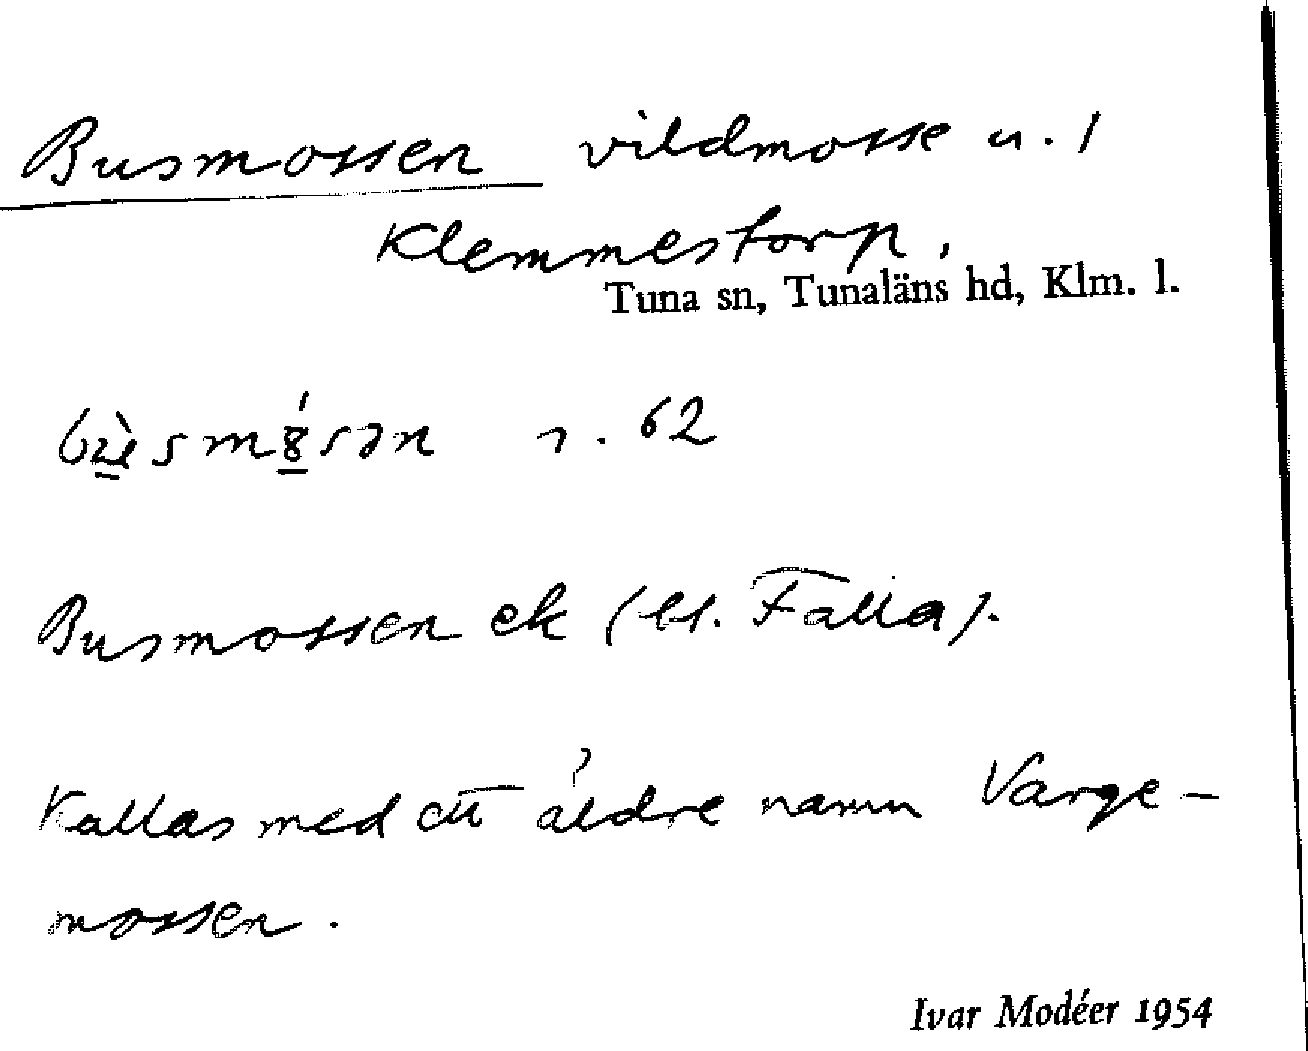 Busmossen vildmosse u. 1
Klemmestorp,
Tuna sn, Tunaläns hd, Klm. l.
62
Busmossen ek (bl. Falla).
Kallas med ett äldre namn Varge-
mossen.
Ivar Modéer 1954